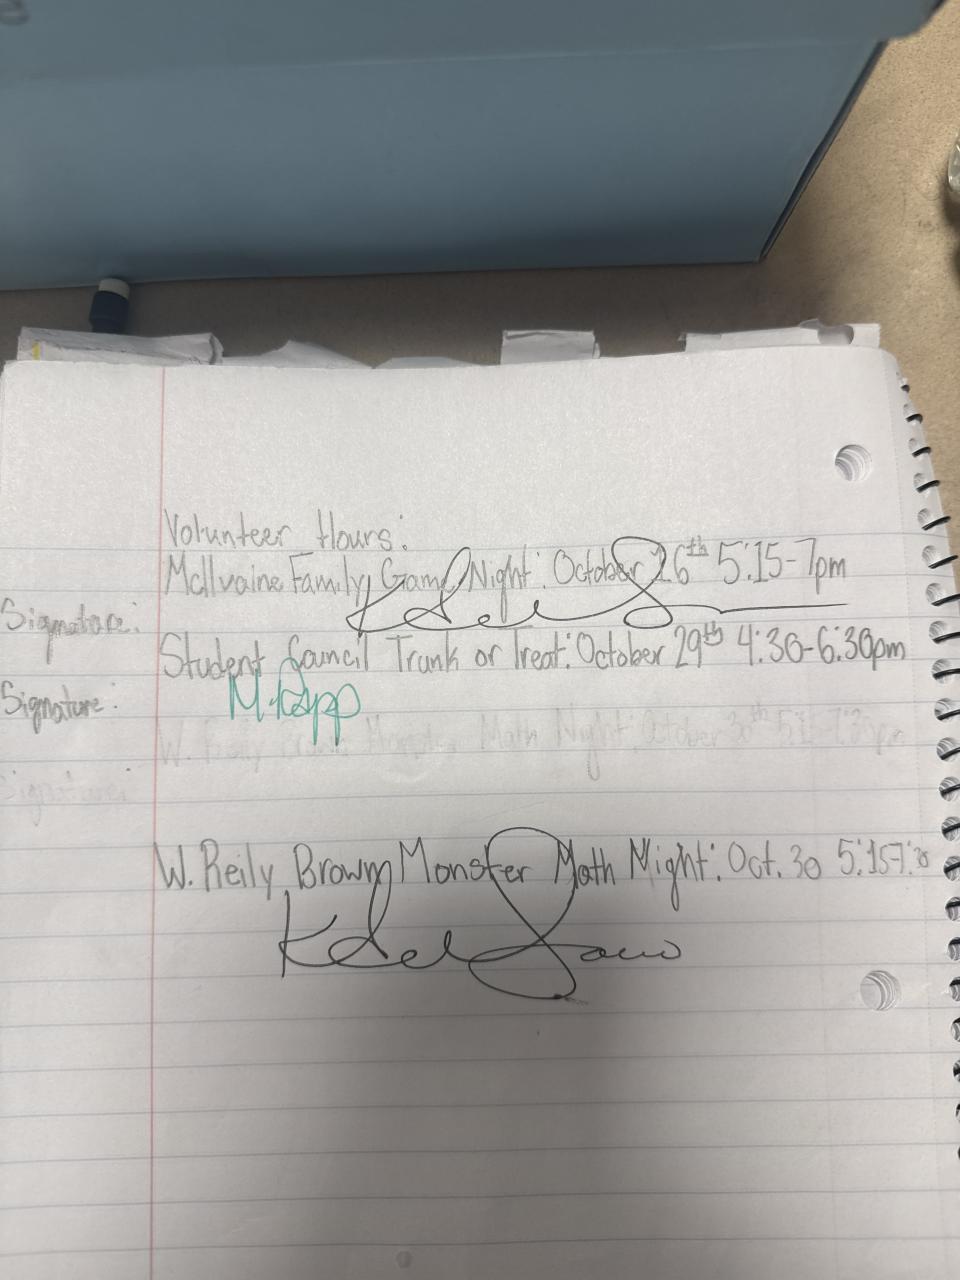 Volunteer Hours:
McIlvaine Family Game Night: October 26th 5:15-7pm
Signature:
Student Council Trunk or Treat: October 29th 4:30-6:30pm
Signature: M. Rapp
W. Reily Brown Monster Math Night: October 30th 5:15-7:30pm
Signature:
W. Reily Brown Monster Math Night: Oct. 30 5:15-7:30